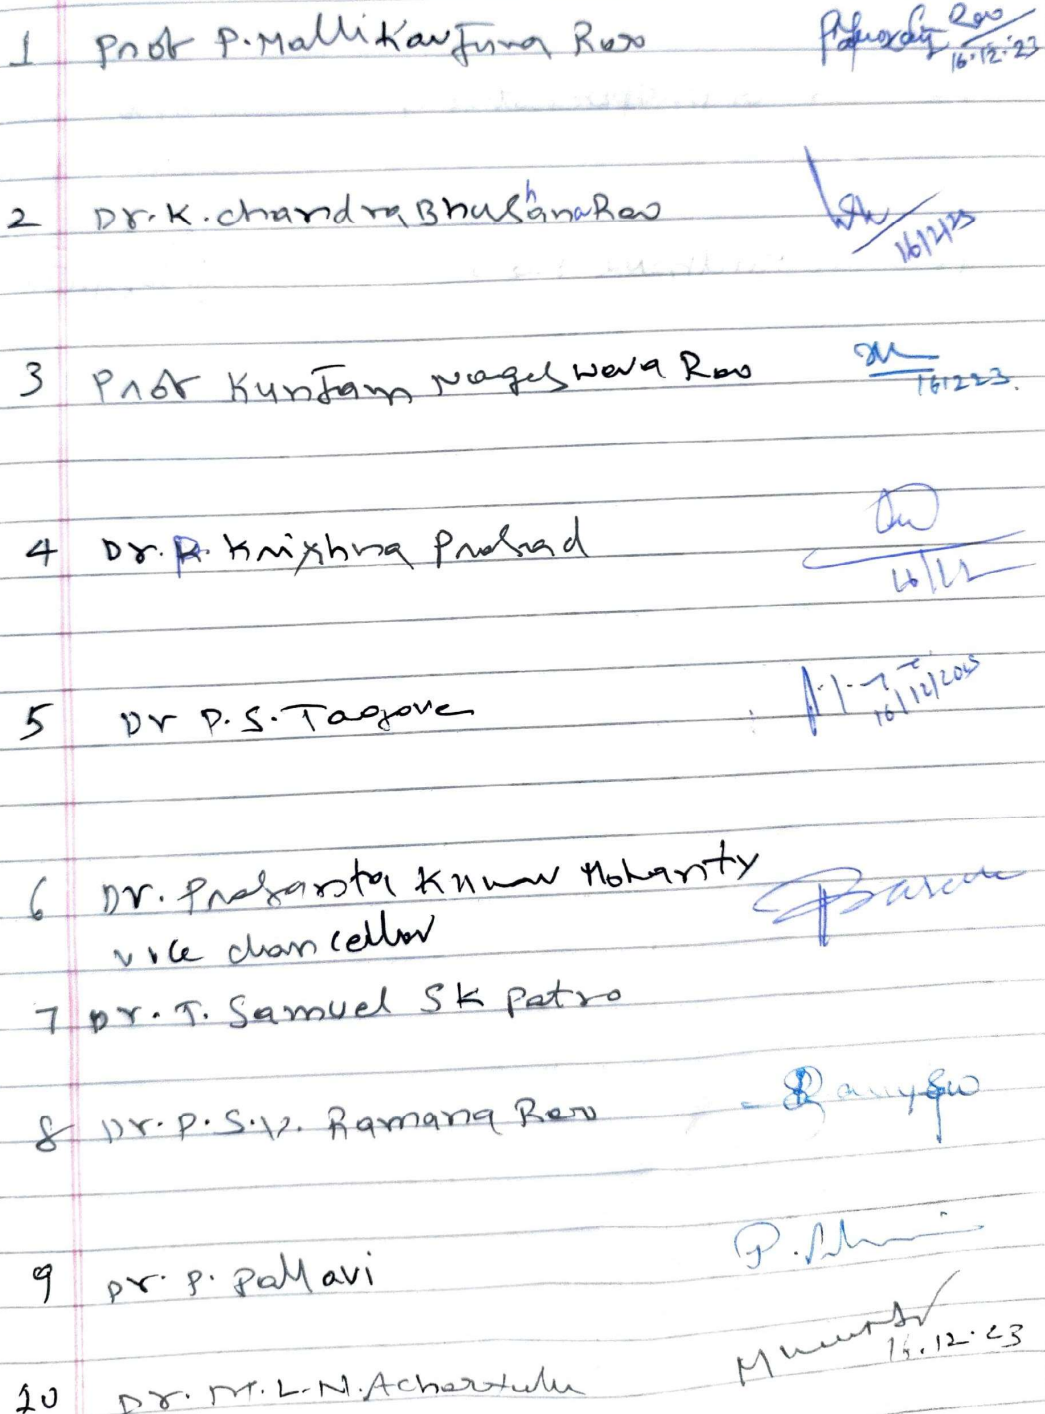 1 Prof P. Mallikarjuna Rao Rao 16.12.23
2 Dr. K. chandra Bhushana Rao 16/12/23
3 Prof Kunjam Nageswara Rao 161223.
4 Dr. R. Krishna Prasad 16/12
5 Dr P. S. Tagore 16/12/2023
6 Dr. Prasanta Kumar Mohanty
vice chancellor
7 Dr. T. Samuel SK Patro
8 Dr. P. S. V. Ramana Rao
9 Dr. P. Pallavi P.
10 Dr. M. L. N. Acharyulu 16.12.23